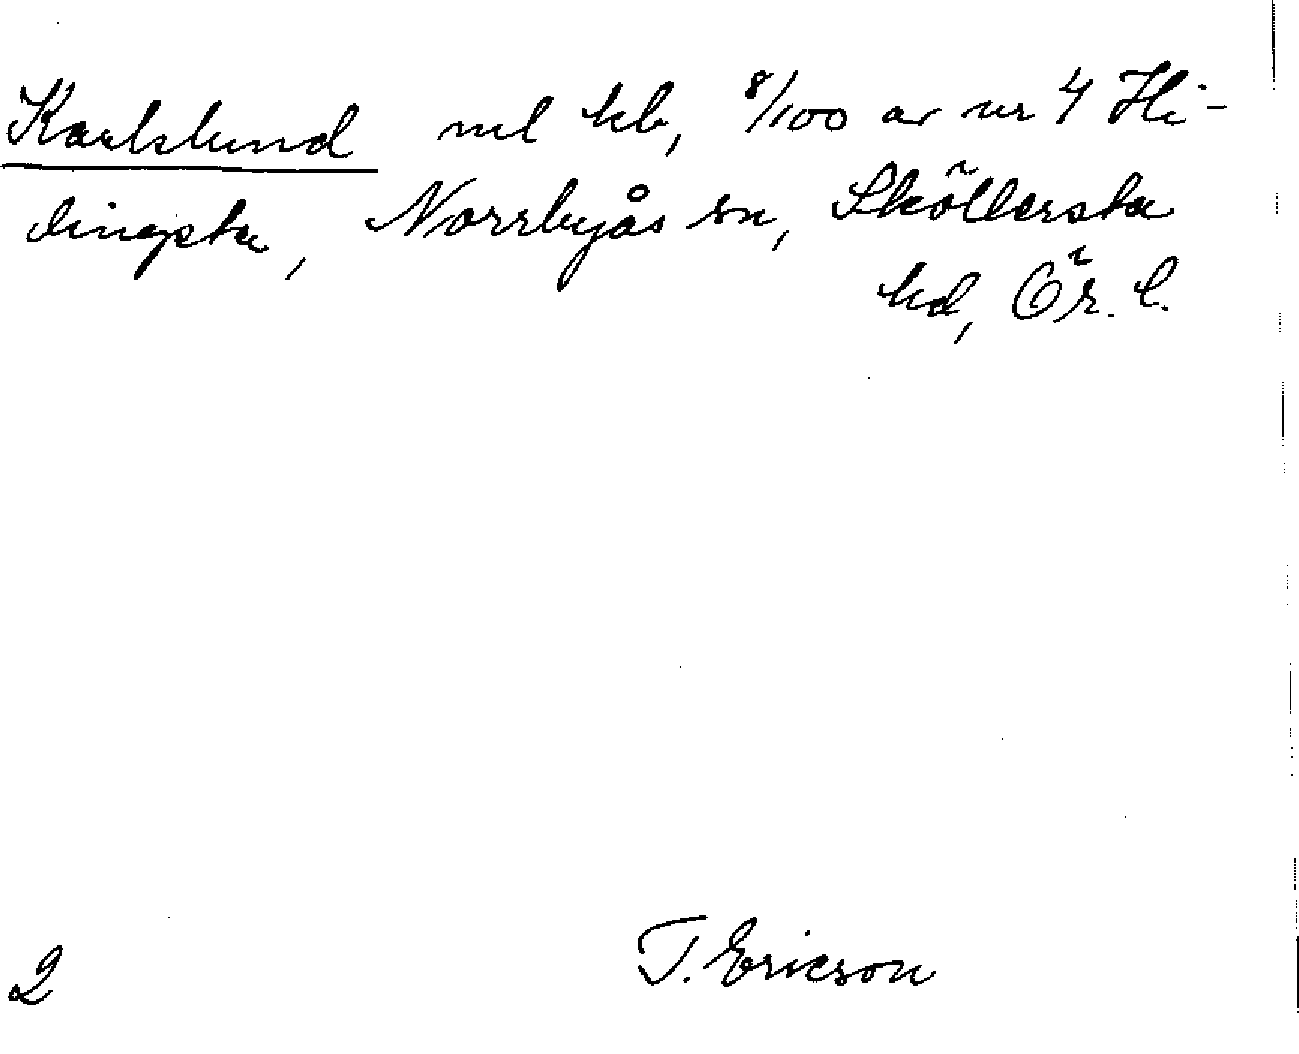 Karlslund nul hb, 8/100 av nr 4 Hi-
dingsta, Norrbyås sn, Sköllersta
hd, Ör. l.
T. Ericson
2